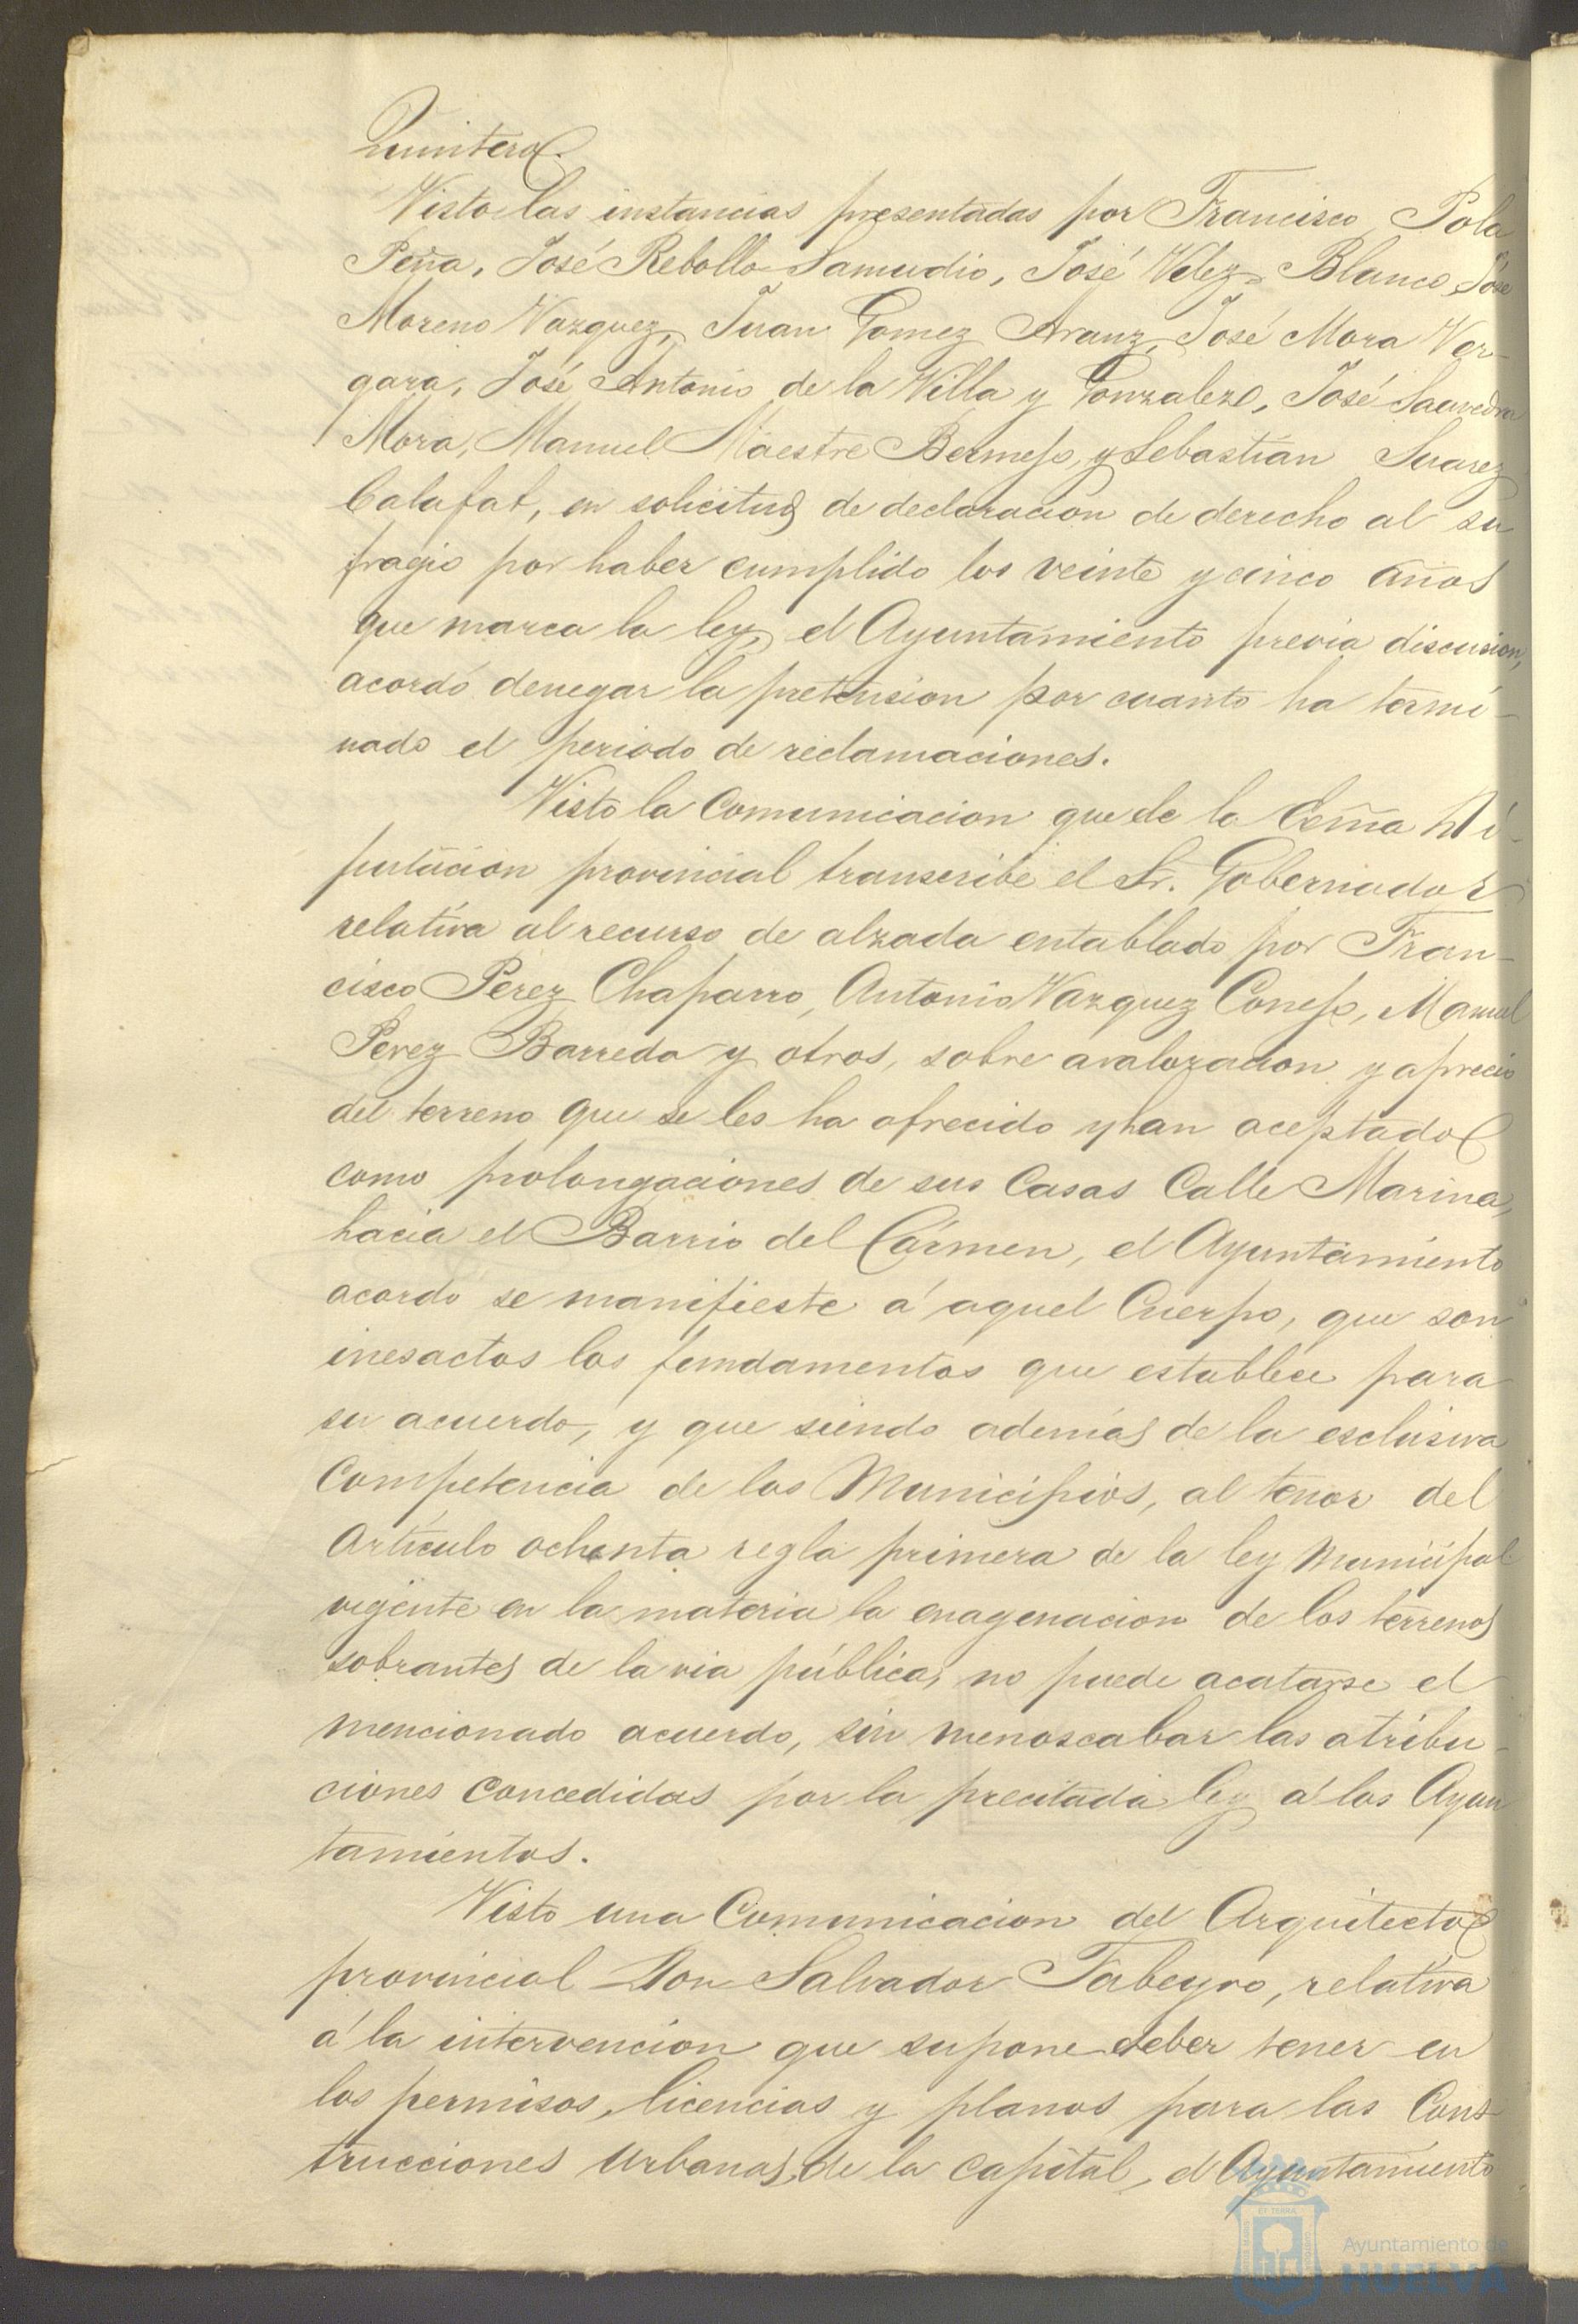 Quintero.
Visto las instancias presentadas por Francisco Pola
Peña, José Rebollo Samudio, José Velez Blanco, José
Moreno Vazquez, Juan Gomez Aranz, José Mora Ver-
gara, José Antonio de la Villa y Gonzalez, José Saavedra
Mora, Manuel Maestre Bermejo, y Sebastian Suarez
Calafat, en solicitud de declaracion de derecho al su
fragio por haber cumplido los veinte y cinco años
que marca la ley, el Ayuntamiento previa discusion,
acordó denegar la pretension por cuanto ha termi-
nado el periodo de reclamaciones.
Visto la Comunicacion que de la Escma Di-
putacion provincial transcribe el Sr. Gobernador
relativa al recurso de alzada entablado por Fran-
cisco Perez Chaparro, Antonio Vazquez Conejo, Manuel
Perez Barreda y otros, sobre avalozacion y aprecio
del terreno que se les ha ofrecido y han aceptado
como prolongaciones de sus Casas Calle Marina,
hacia el Barrio del Cármen, el Ayuntamiento
acordó se manifieste á aquel Cuerpo, que son
inesactos los fundamentos que establece para
su acuerdo, y que siendo además de la esclusiva
Competencia de los Municipios, al tenor del
Artículo ochenta regla primera de la ley Municipal
vigente en la materia la enagenacion de los terrenos
sobrantes de la via pública, no puede acatarse el
mencionado acuerdo, sin menoscabar las atribu-
ciones Concedidas por la precitada ley á los Ayun
tamientos.
Visto una Comunicacion del Arquitecto
provincial Don Salvador Tabeyro, relativa
á la intervencion que supone deber tener en
los permisos, licencias y planos para las Cons-
trucciones Urbanas de la Capital, el Ayuntamiento
Ayuntamiento de
HUELVA